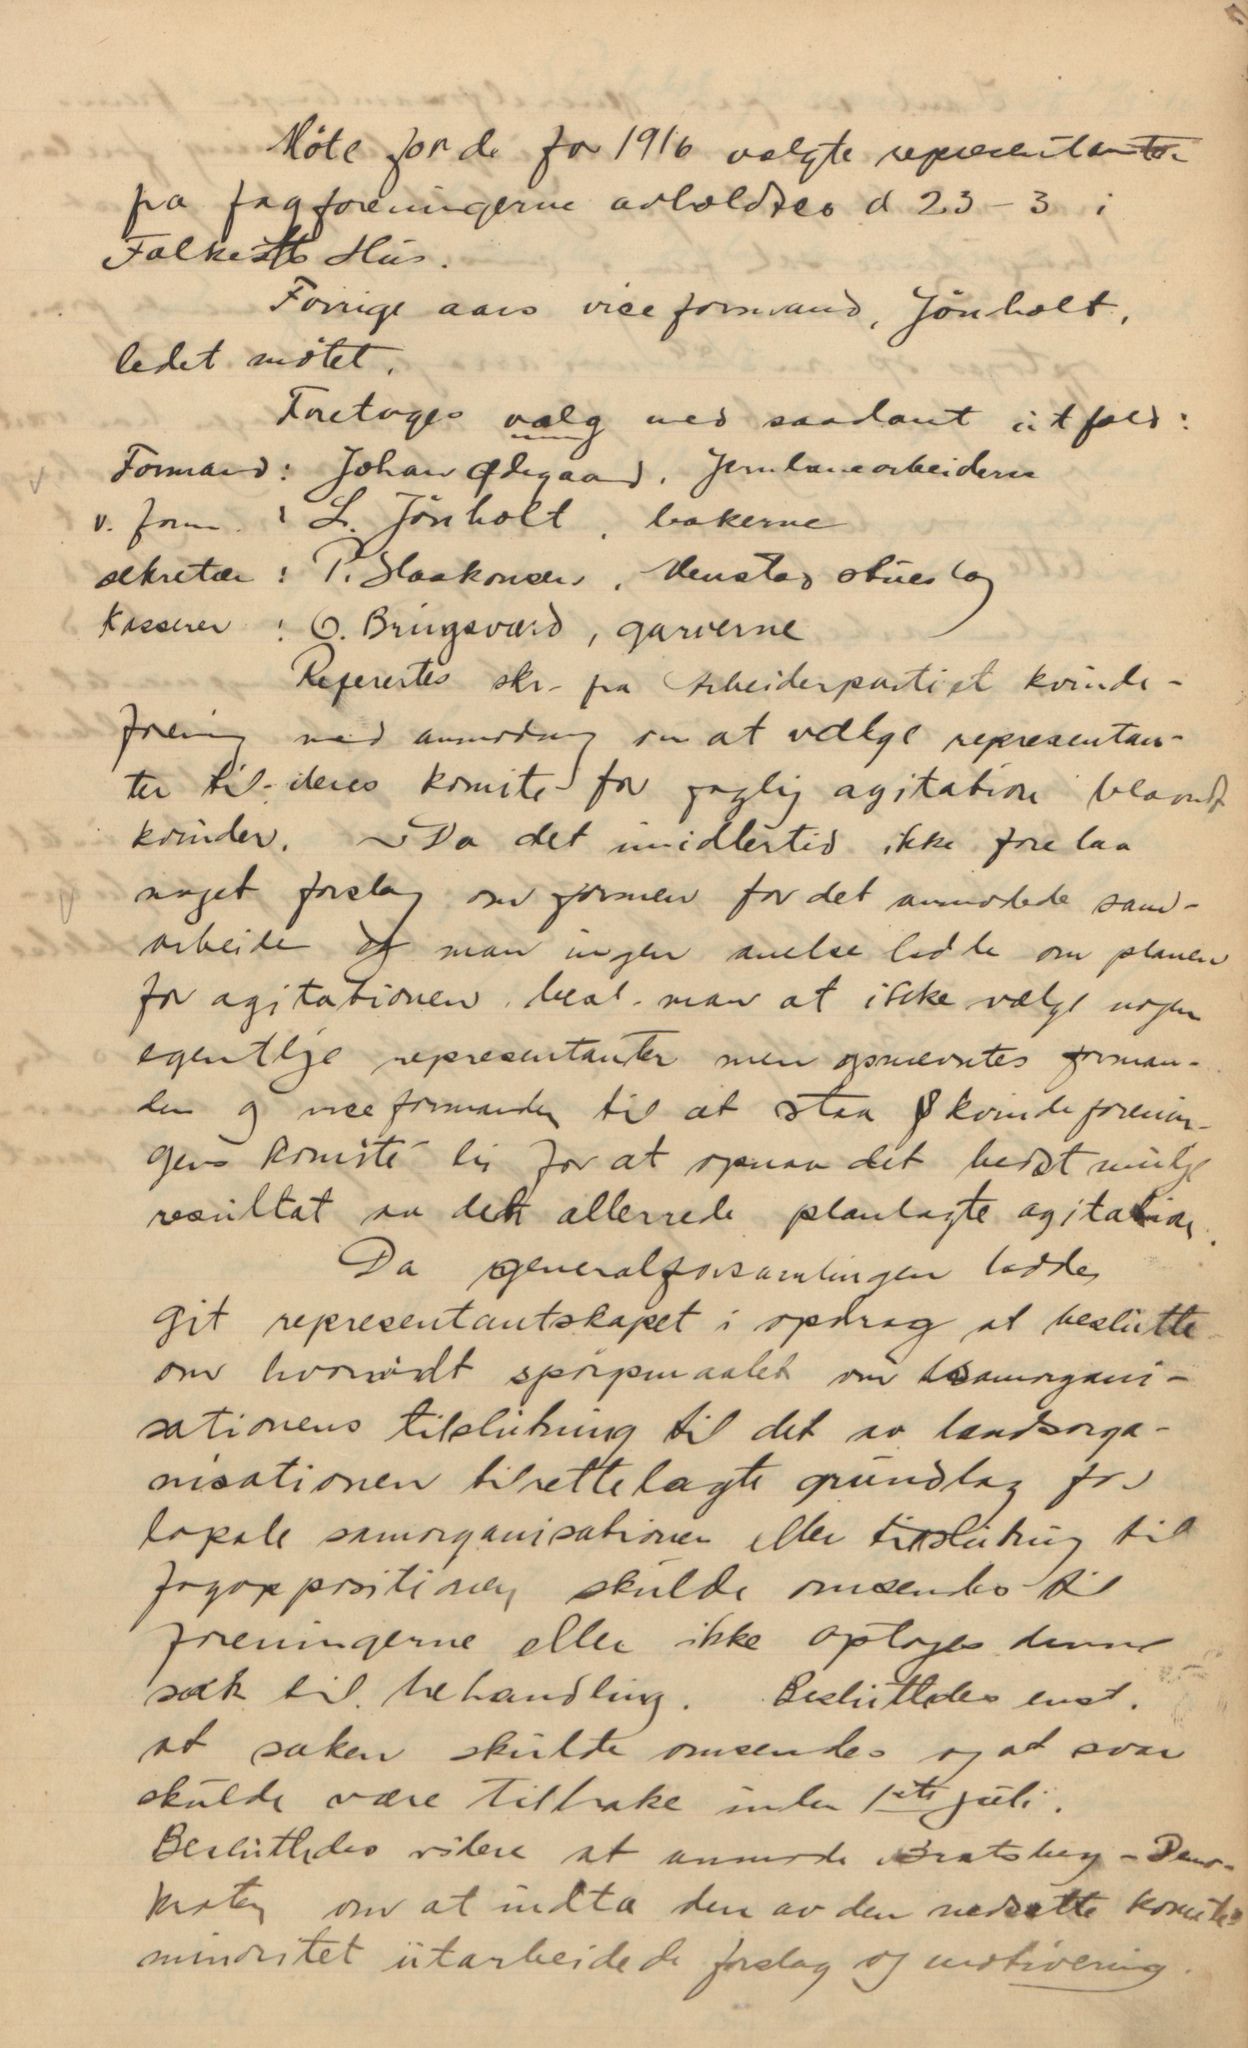 Møte for de for 1916 valgte representanter
fra fagforeningerne avholdtes d 23-3 i
Folkets Hus.
Forrige aars viceformand, Jönholt,
ledet møtet.
Foretoges valg med saadant utfald:
Formand: Johan Ødegaard, Jernbanearbeiderne
v. form. : L. Jönholt, bakerne
sekretær : P. Haakonsen, Menstad stueslag
Kasserer : O. Bringsværd, garverne
Referertes skr. fra Arbeiderpartiets kvinde-
forening med anmodning om at vælge representan-
ter til deres komite for faglig agitation blandt
kvinder. Da det imidlertid ikke forelaa
noget forslag om formen for det anmodede sam-
arbeide og man ingen anelse hadde om planen
for agitationen besl. man at ikke vælge nogen
egentlige representanter men opnævntes forman-
den og viceformanden til at staa kvindeforenin-
gens komité bi for at opnaa det bedst mulige
resultat av den allerrede planlagte agitation.
Da generalforsamlingen hadde
git representantskapet i opdrag at beslutte
om hvorvidt spørgsmaalet om samorgani-
sationens tilslutning til det av landsorga-
nisationen tilrettelagte grundlag for
lokale samorganisationer eller tilslutning til
fagoppositionen skulde omsendes til
foreningerne eller ikke optoges denne
sak til behandling. Besluttedes enst.
at saken skulde omsendes og at svar
skulde være tilbake inden 1ste juli.
Besluttedes videre at anmode Bratsberg-Demo-
kraten om at indta den av den nedsatte komites
minoritet utarbeidede forslag og motivering.